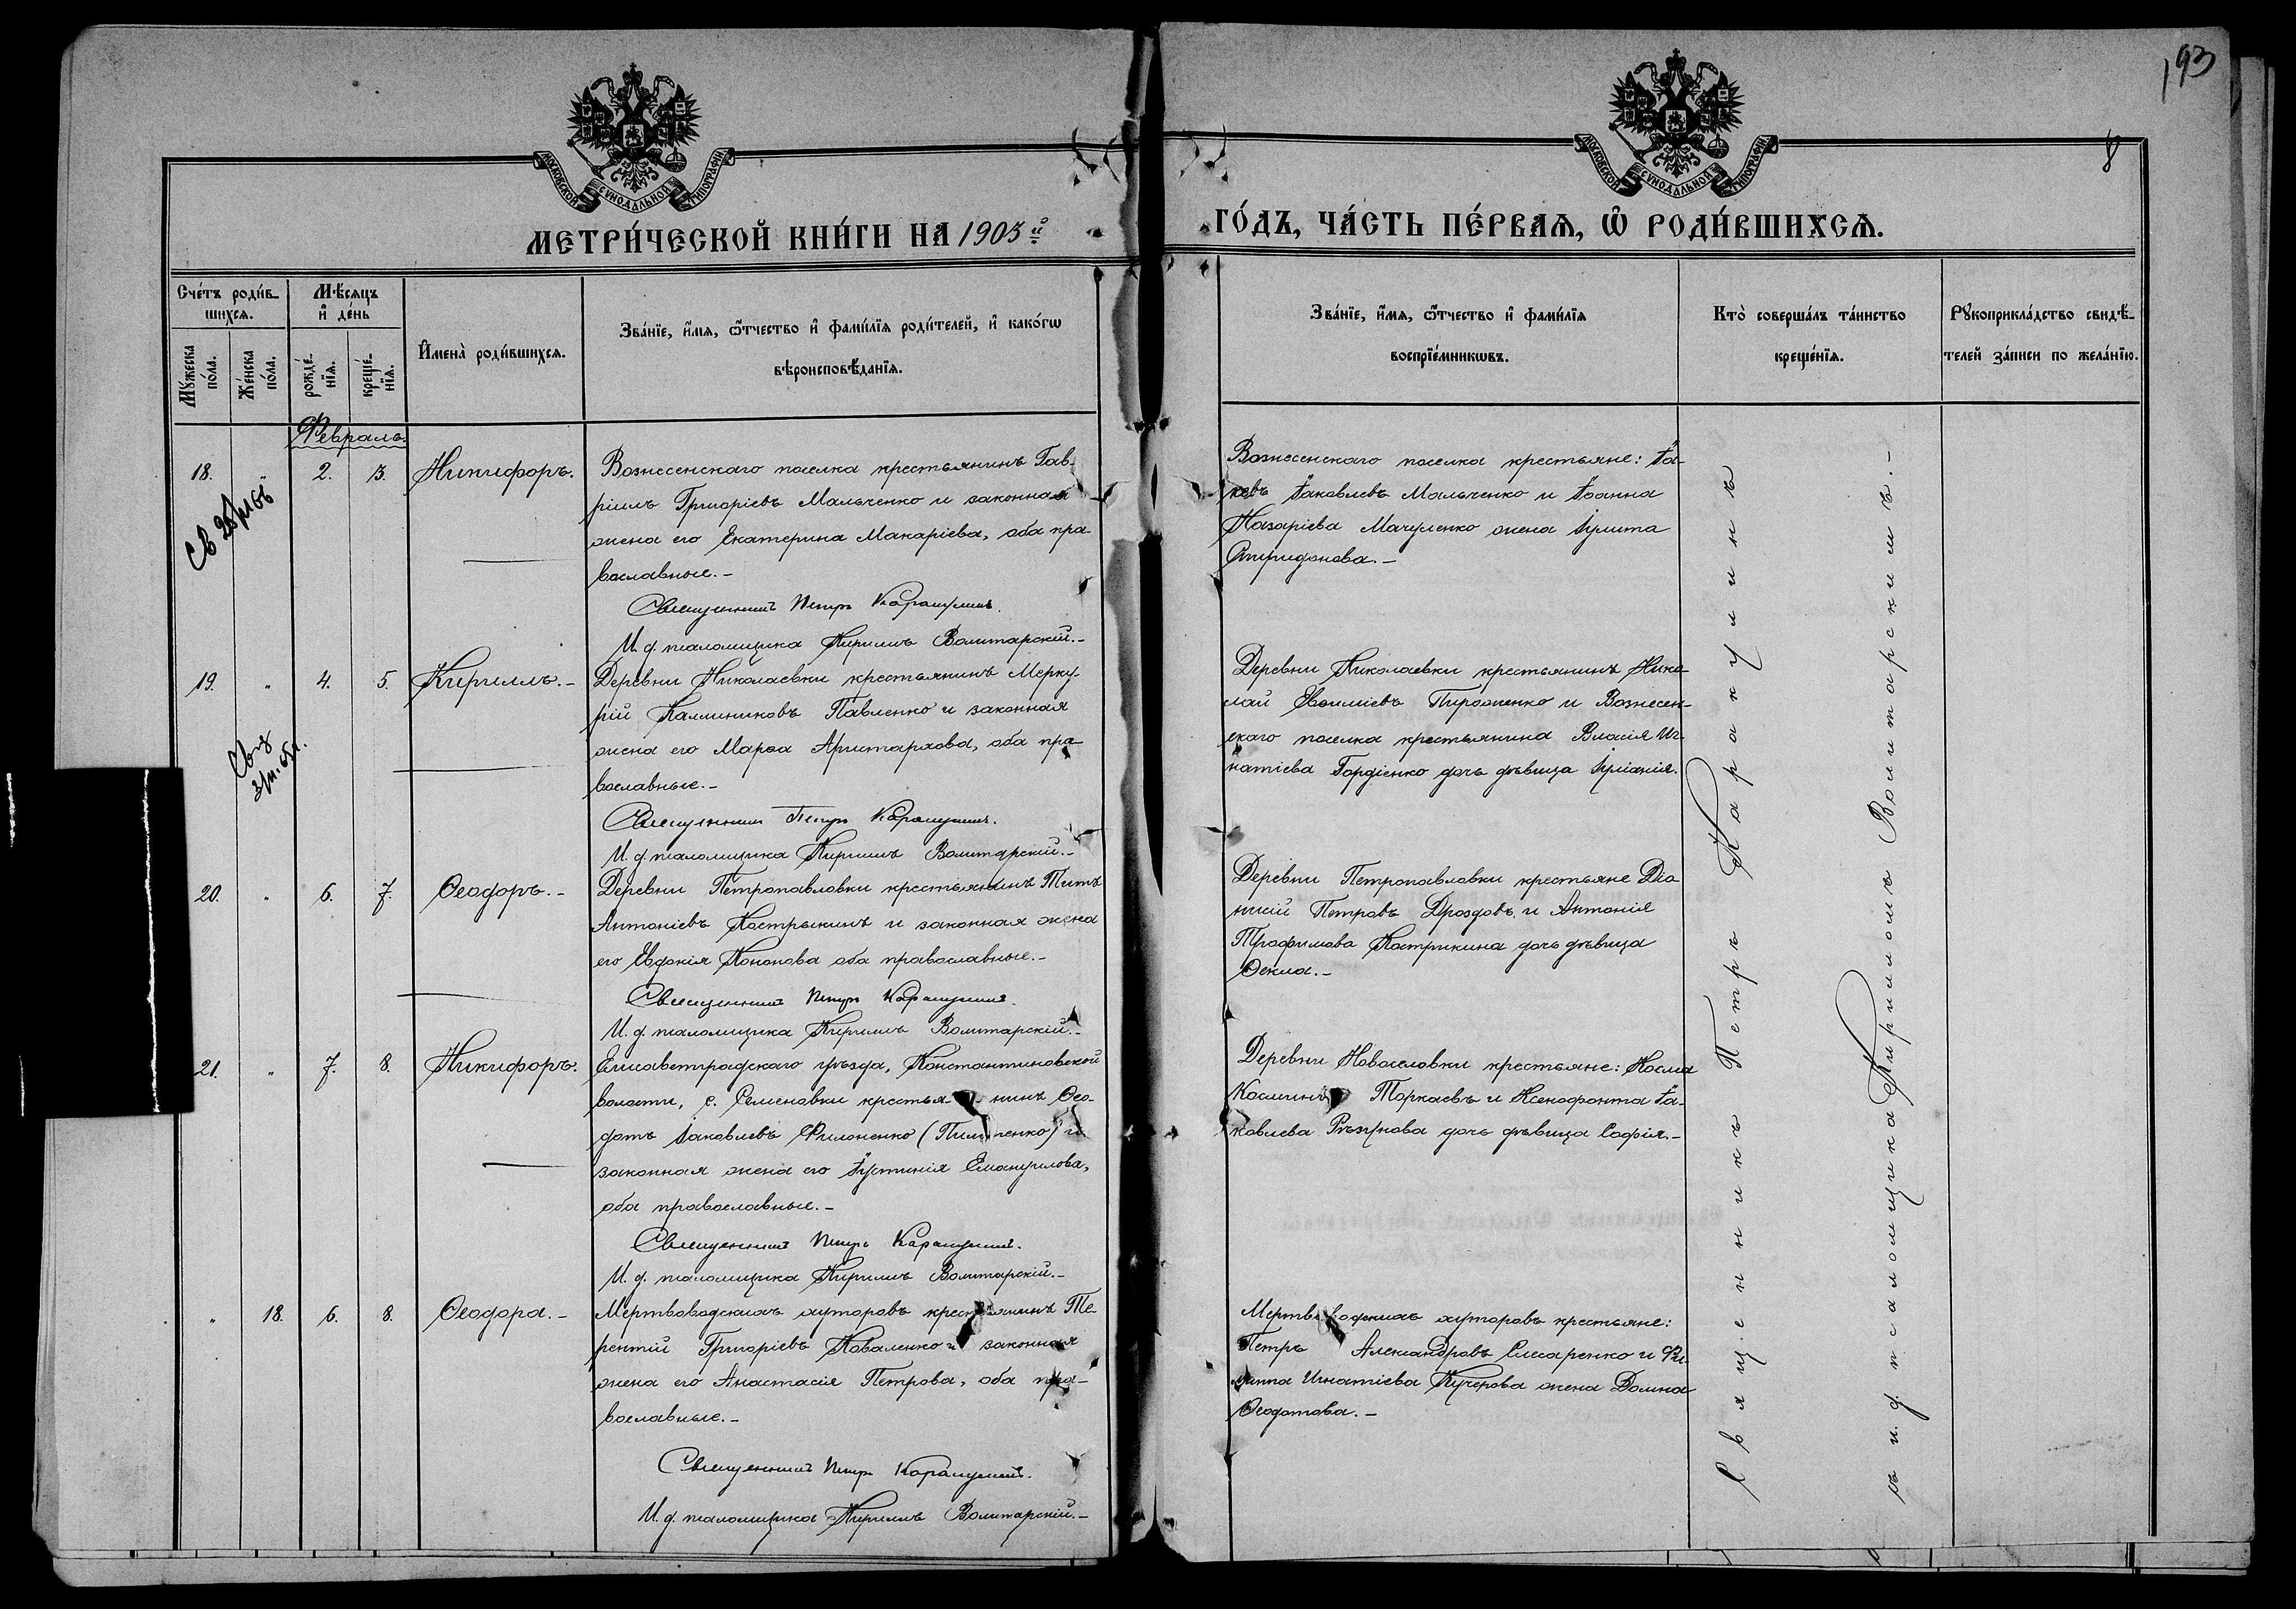 193
8
МОСКОВСКОЙ СѴНОДАЛЬНОЙ ТИПОГРАФІИ
МОСКОВСКОЙ СѴНОДАЛЬНОЙ ТИПОГРАФІИ
МЕТРИ́ЧЕСКОЙ КНИ́ГИ НА 1903й
ГО́ДЪ, ЧА́СТЬ ПЕ́РВАѦ, Ѡ҆ РОДИ́ВШИХСѦ.
Сче́тъ роди́в-
шихсѧ.
Мꙋ́жеска по́ла.
Же́нска по́ла.
Мѣ́сѧцъ и҆ де́нь
рожде́-нїѧ.
креще́-нїѧ.
И҆мена̀ роди́вшихсѧ.
Зва́нїе, и҆́мѧ, ѻ҆́тчество и҆ фами́лїѧ роди́телей, и҆ како́гѡ
вѣроисповѣ́данїѧ.
Зва́нїе, и҆́мѧ, ѻ҆́тчество и҆ фами́лїѧ
воспрїе́мникѡвъ.
Кто̀ соверша́лъ та́инство
креще́нїѧ.
Рꙋкоприкла́дство свидѣ́-
телей за́писи по жела́нїю.
Февраль.
18. " 2. 3. Никифоръ.
Вознесенскаго поселка крестьянинъ Гав-
ріилъ Григоріевъ Мальченко и законная
жена его Екатерина Макаріева, оба пра-
вославные.-
Священникъ Петръ Каракулинъ.
И. д. псаломщика Кириллъ Волитарскій.-
Вознесенскаго поселка крестьяне: Іа-
ковъ Іаковлевъ Мальченко и Іоанна
Назаріева Мачуленко жена Іулита
Спиридонова.-
19. " 4. 5. Кириллъ.-
Деревни Николаевки крестьянинъ Мерку-
рій Каллиниковъ Павленко и законная
жена его Марѳа Аристархова, оба пра-
вославные.-
Священникъ Петръ Каракулинъ.
И. д. псаломщика Кириллъ Волитарскій.-
Деревни Николаевки крестьянинъ Нико-
лай Евѳиміевъ Пироженко и Вознесен-
скаго поселка крестьянина Власія Иг-
натіева Гордіенко дочь дѣвица Іуліанія.
20. " 6. 7. Ѳеодоръ.-
Деревни Петропавловки крестьянинъ Титъ
Антоніевъ Кострыкинъ и законная жена
его Евдокія Кононова оба православные.-
Священникъ Петръ Каракулинъ.
И. д. псаломщика Кириллъ Волитарскій.-
Деревни Петропавловки крестьяне Діо-
нисій Петровъ Дроздовъ и Антонія
Трофимова Кострикина дочь дѣвица
Ѳекла.-
21. " 7. 8. Никифоръ.
Елисаветградскаго уѣзда, Константиновской
волости, с. Семеновки крестья-нинъ Ѳео-
дотъ Іаковлевъ Филоненко (Пилипенко) и
законная жена его Іустинія Емануилова,
оба православные.-
Священникъ Петръ Каракулинъ.
И. д. псаломщика Кириллъ Волитарскій.-
Деревни Новоселовки крестьяне: Косма
Косминъ Торкаевъ и Ксенофонта Іа-
ковлева Рѣзунова дочь дѣвица Софія.-
" 18. 6. 8. Ѳеодора.-
Мертвоводскихъ хуторовъ крестьянинъ Те-
рентій Григоріевъ Коваленко и законная
жена его Анастасія Петрова, оба пра-
вославные.-
Священникъ Петръ Каракулинъ.
И. д. псаломщика Кириллъ Волитарскій.-
Мертвоводскихъ хуторовъ крестьяне:
Петръ Александровъ Слесаренко и Фи-
липпа Игнатіева Кучерова жена Домна
Ѳеодотова.-
Священникъ Петръ Каракулинъ
съ и. д. псаломщика Кирилломъ Волитарскимъ.-